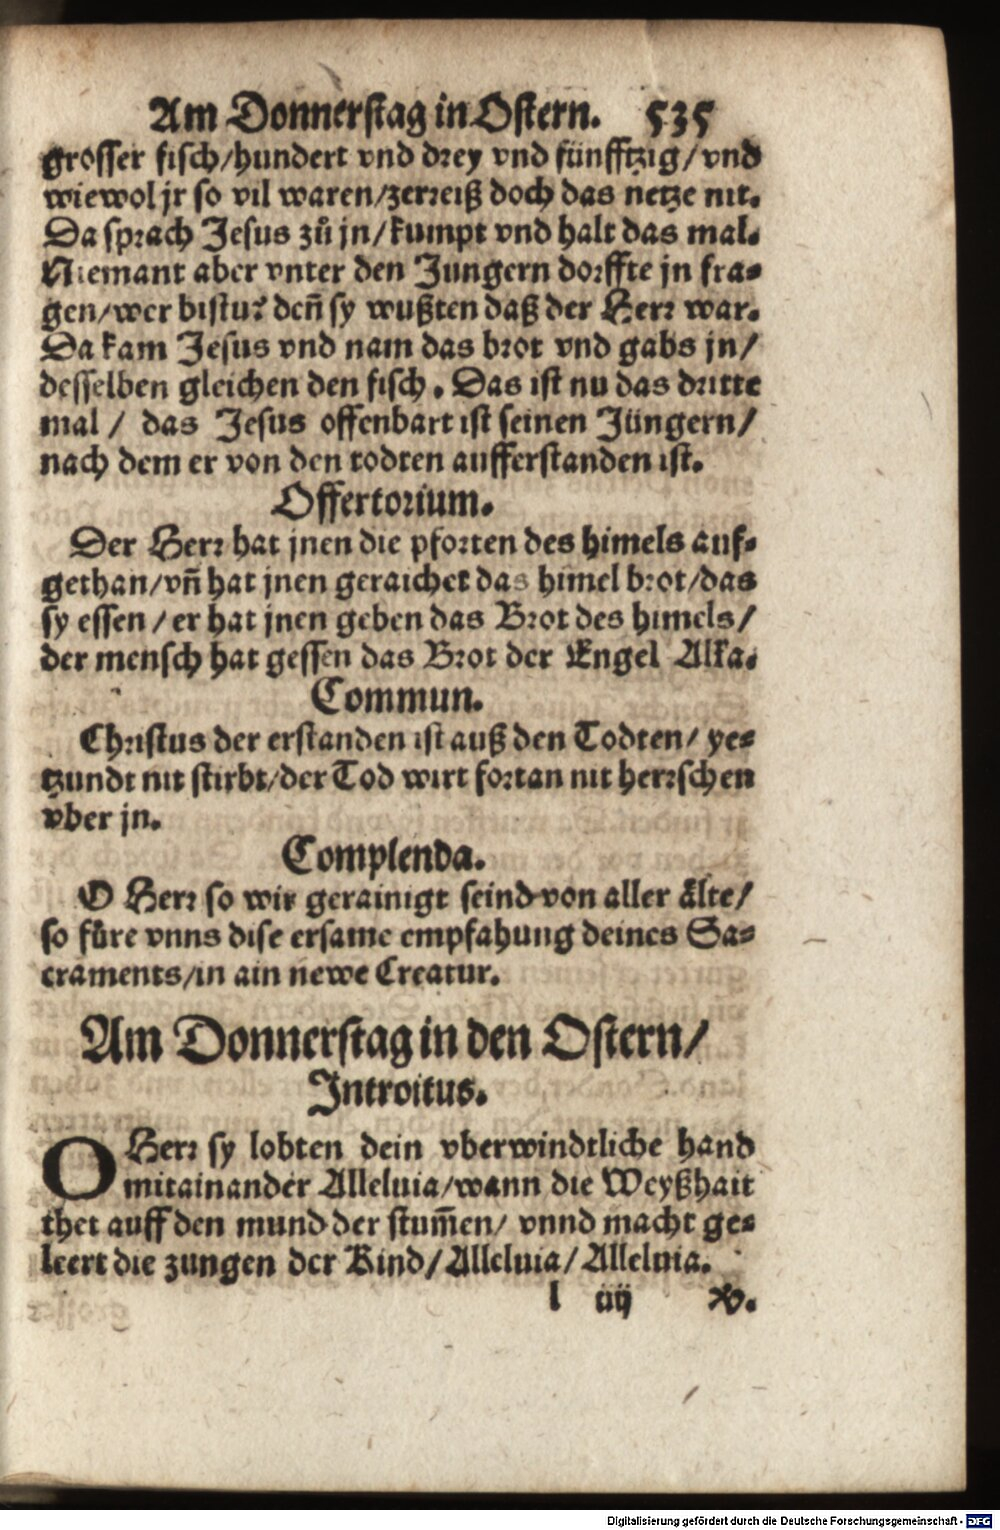 Am Donnerstag in Ostern. 535
grosser fisch/hundert vnd drey vnd fünfftzig/vnd
wiewol jr so vil waren/zerreiß doch das netze nit.
Da sprach Jesus zů jn/kumpt vnd halt das mal.
Niemant aber vnter den Jungern dorffte jn fra-
gen/wer bistu? deñ sy wußten daß der Herr war.
Da kam Jesus vnd nam das brot vnd gabs jn/
desselben gleichen den fisch. Das ist nu das dritte
mal / das Jesus offenbart ist seinen Jüngern/
nach dem er von den todten aufferstanden ist.
Offertorium.
Der Herr hat jnen die pforten des himels auf-
gethan/vñ hat jnen geraichet das himel brot/das
sy essen / er hat jnen geben das Brot des himels/
der mensch hat gessen das Brot der Engel Alla.
Commun.
Christus der erstanden ist auß den Todten/ ye-
tzundt nit stirbt/der Tod wirt fortan nit herrschen
vber jn.
Complenda.
O Herr so wir gerainigt seind von aller älte/
so fůre vnns dise ersame empfahung deines Sa-
craments/in ain newe Creatur.
Am Donnerstag in den Ostern/
Introitus.
O Herr sy lobten dein vberwindtliche hand
mitainander Alleluia/wann die Weyßhait
thet auff den mund der stum̃en/ vnnd macht ge-
leert die zungen der Kind/Alleluia/Alleluia.
l iiij V.
Digitalisierung gefördert durch die Deutsche Forschungsgemeinschaft - DFG